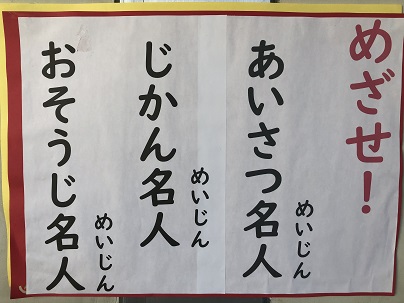 めざせ！
あいさつ名人
めいじん
じかん名人
めいじん
おそうじ名人
めいじん